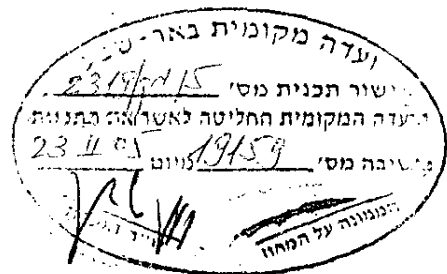 ועדה מקומית באר-שבע
אישור תכנית מס' 2319/מק/15
הועדה המקומית החליטה לאשר את התכנית
בישיבה מס' 19159 מיום 23 II 05
הממונה על המחוז